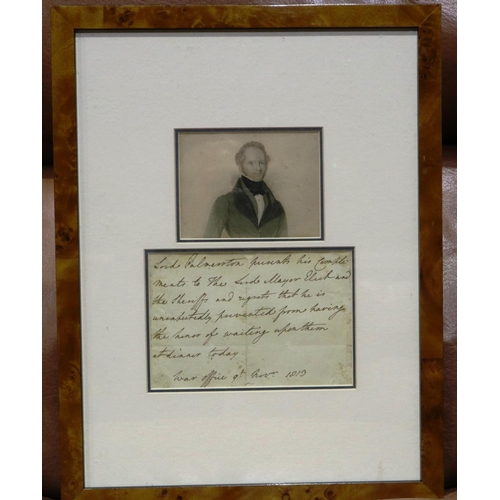 Lord Palmerston presents his compli
ments to The Lord Mayor Elect and
the Sheriffs and regrets that he is
unexpectedly prevented from having
the honor of waiting upon them
at dinner today
War office 9th Novr 1813